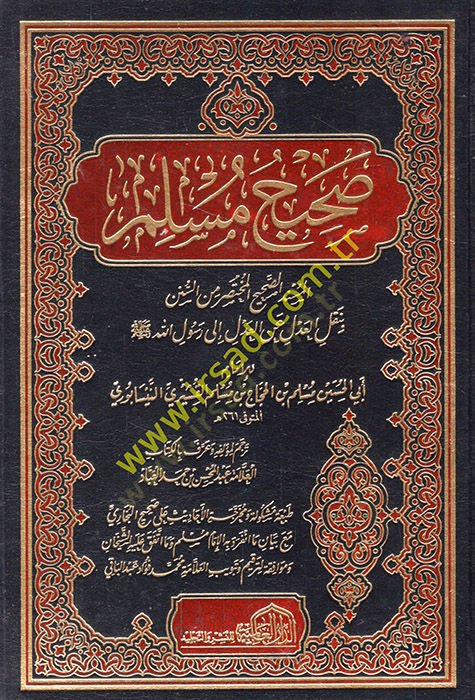 صَحِيحُ مُسْلِمٍ
الصحيح المختصر من السنن
بنقل العدل عن العدل إلى رسول الله ﷺ
أبي الحسين مسلم بن الحجاج بن مسلم القشيري النيسابوري
المتوفى ٢٦١هـ
ترجم لمؤلفه وعرف بالكتاب
العلامة عبد المحسن بن حمد العباد
طبعة مشكولة ومخرجة الأحاديث على صحيح البخاري
مع بيان ما انفرد به الإمام مسلم وما اتفق عليه الشيخان
وموافقة لترقيم وتبويب العلامة محمد فؤاد عبد الباقي
الدار العالمية
للنشر والتجليد
www.irsad.com.tr